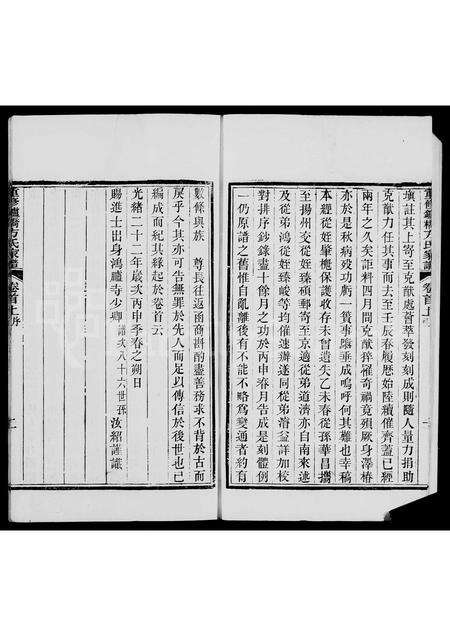 填註其上寄至克猷處薈萃發刻刻成則隨人量力捐助
克猷力任其事而去歲至壬辰春履始陸續催齊蓋已經
兩年之久矣詎料四月間克猷猝罹奇禍竟殞厥身澤椿
亦於是秋病歿功虧一簣事幾垂成嗚呼何其難也幸稿
本經從姪肇樾保護收存未曾遺失乙未春從孫華昌攜
至揚州交從姪臻碩郵寄至京適從弟道濟亦自南來遂
及從弟鴻從姪臻峻等均催速辦遂同從弟濬益詳加校
對排序鈔錄盡十餘月之功於丙申春月告成是刻體例
一仍原譜之舊惟自亂離後有不能不略爲變通者約有
數條與族 尊長往返函商斟酌盡善務求不背於古而
戾乎今其亦可告無罪於先人而足以傳信於後世也已
編成而紀其緣起於卷首云
光緒二十二年歲次丙申季春之朔日
賜進士出身鴻臚寺少卿譜次八十六世孫汝紹謹識